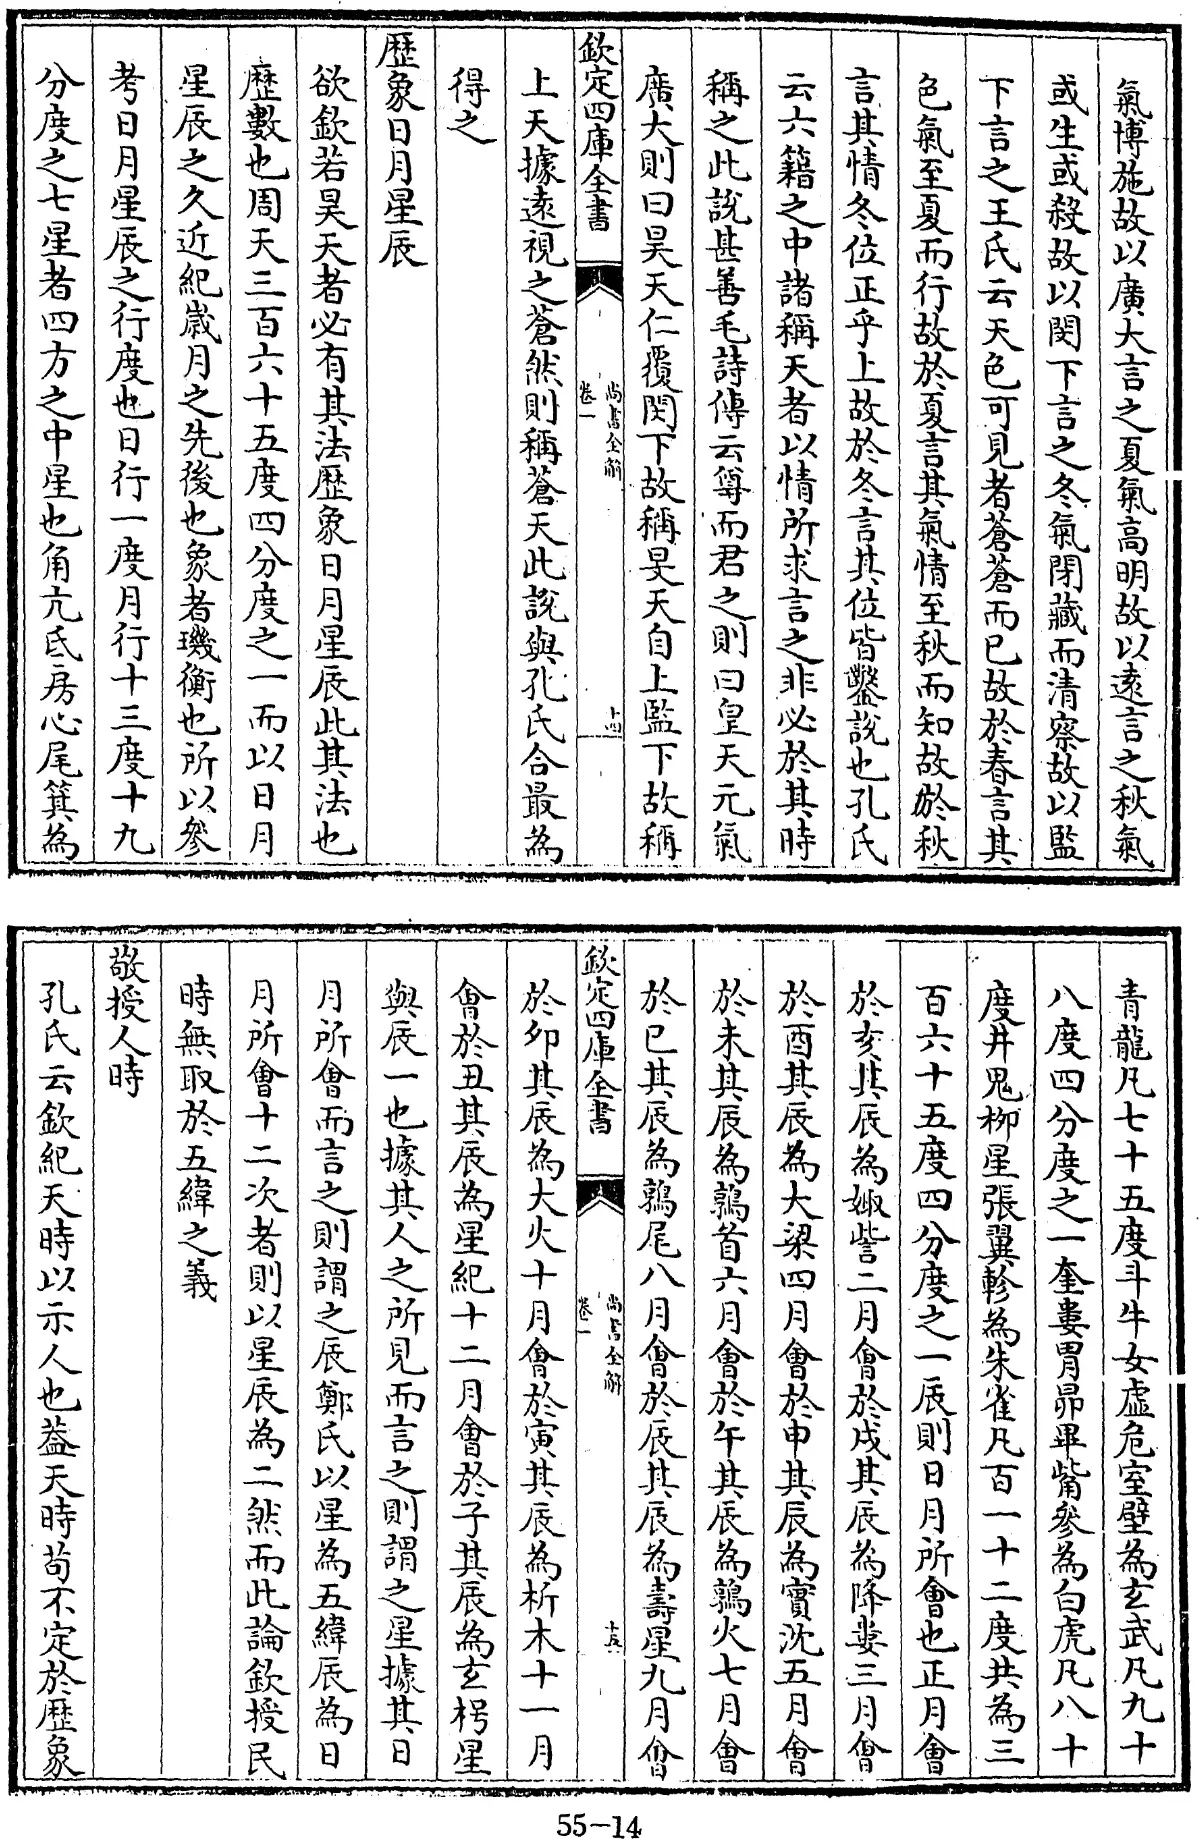 氣博施故以廣大言之夏氣高明故以遠言之秋氣
或生或殺故以閔下言之冬氣閉藏而清察故以監
下言之王氏云天色可見者蒼蒼而已故於春言其
色氣至夏而行故於夏言其氣情至秋而知故於秋
言其情冬位正乎上故於冬言其位皆鑿說也孔氏
云六籍之中諸稱天者以情所求言之非必於其時
稱之此說甚善毛詩傳云尊而君之則曰皇天元氣
廣大則曰昊天仁覆閔下故稱旻天自上監下故稱
欽定四庫全書
尚書全解
卷一
十四
上天據遠視之蒼然則稱蒼天此說與孔氏合最為
得之
歷象日月星辰
欲欽若昊天者必有其法歷象日月星辰此其法也
歷數也周天三百六十五度四分度之一而以日月
星辰之久近紀歲月之先後也象者璣衡也所以參
考日月星辰之行度也日行一度月行十三度十九
分度之七星者四方之中星也角亢氐房心尾箕為
青龍凡七十五度斗牛女虛危室壁為玄武凡九十
八度四分度之一奎婁胃昴畢觜參為白虎凡八十
度井鬼柳星張翼軫為朱雀凡百一十二度共為三
百六十五度四分度之一辰則日月所會也正月會
於亥其辰為娵訾二月會於戌其辰為降婁三月會
於酉其辰為大梁四月會於申其辰為實沈五月會
於未其辰為鶉首六月會於午其辰為鶉火七月會
於巳其辰為鶉尾八月會於辰其辰為壽星九月會
欽定四庫全書
尚書全解
卷一
十五
於卯其辰為大火十月會於寅其辰為析木十一月
會於丑其辰為星紀十二月會於子其辰為玄枵星
與辰一也據其人之所見而言之則謂之星據其日
月所會而言之則謂之辰鄭氏以星為五緯辰為日
月所會十二次者則以星辰為二然而此論欽授民
時無取於五緯之義
敬授人時
孔氏云欽紀天時以示人也蓋天時苟不定於歷象
55-14